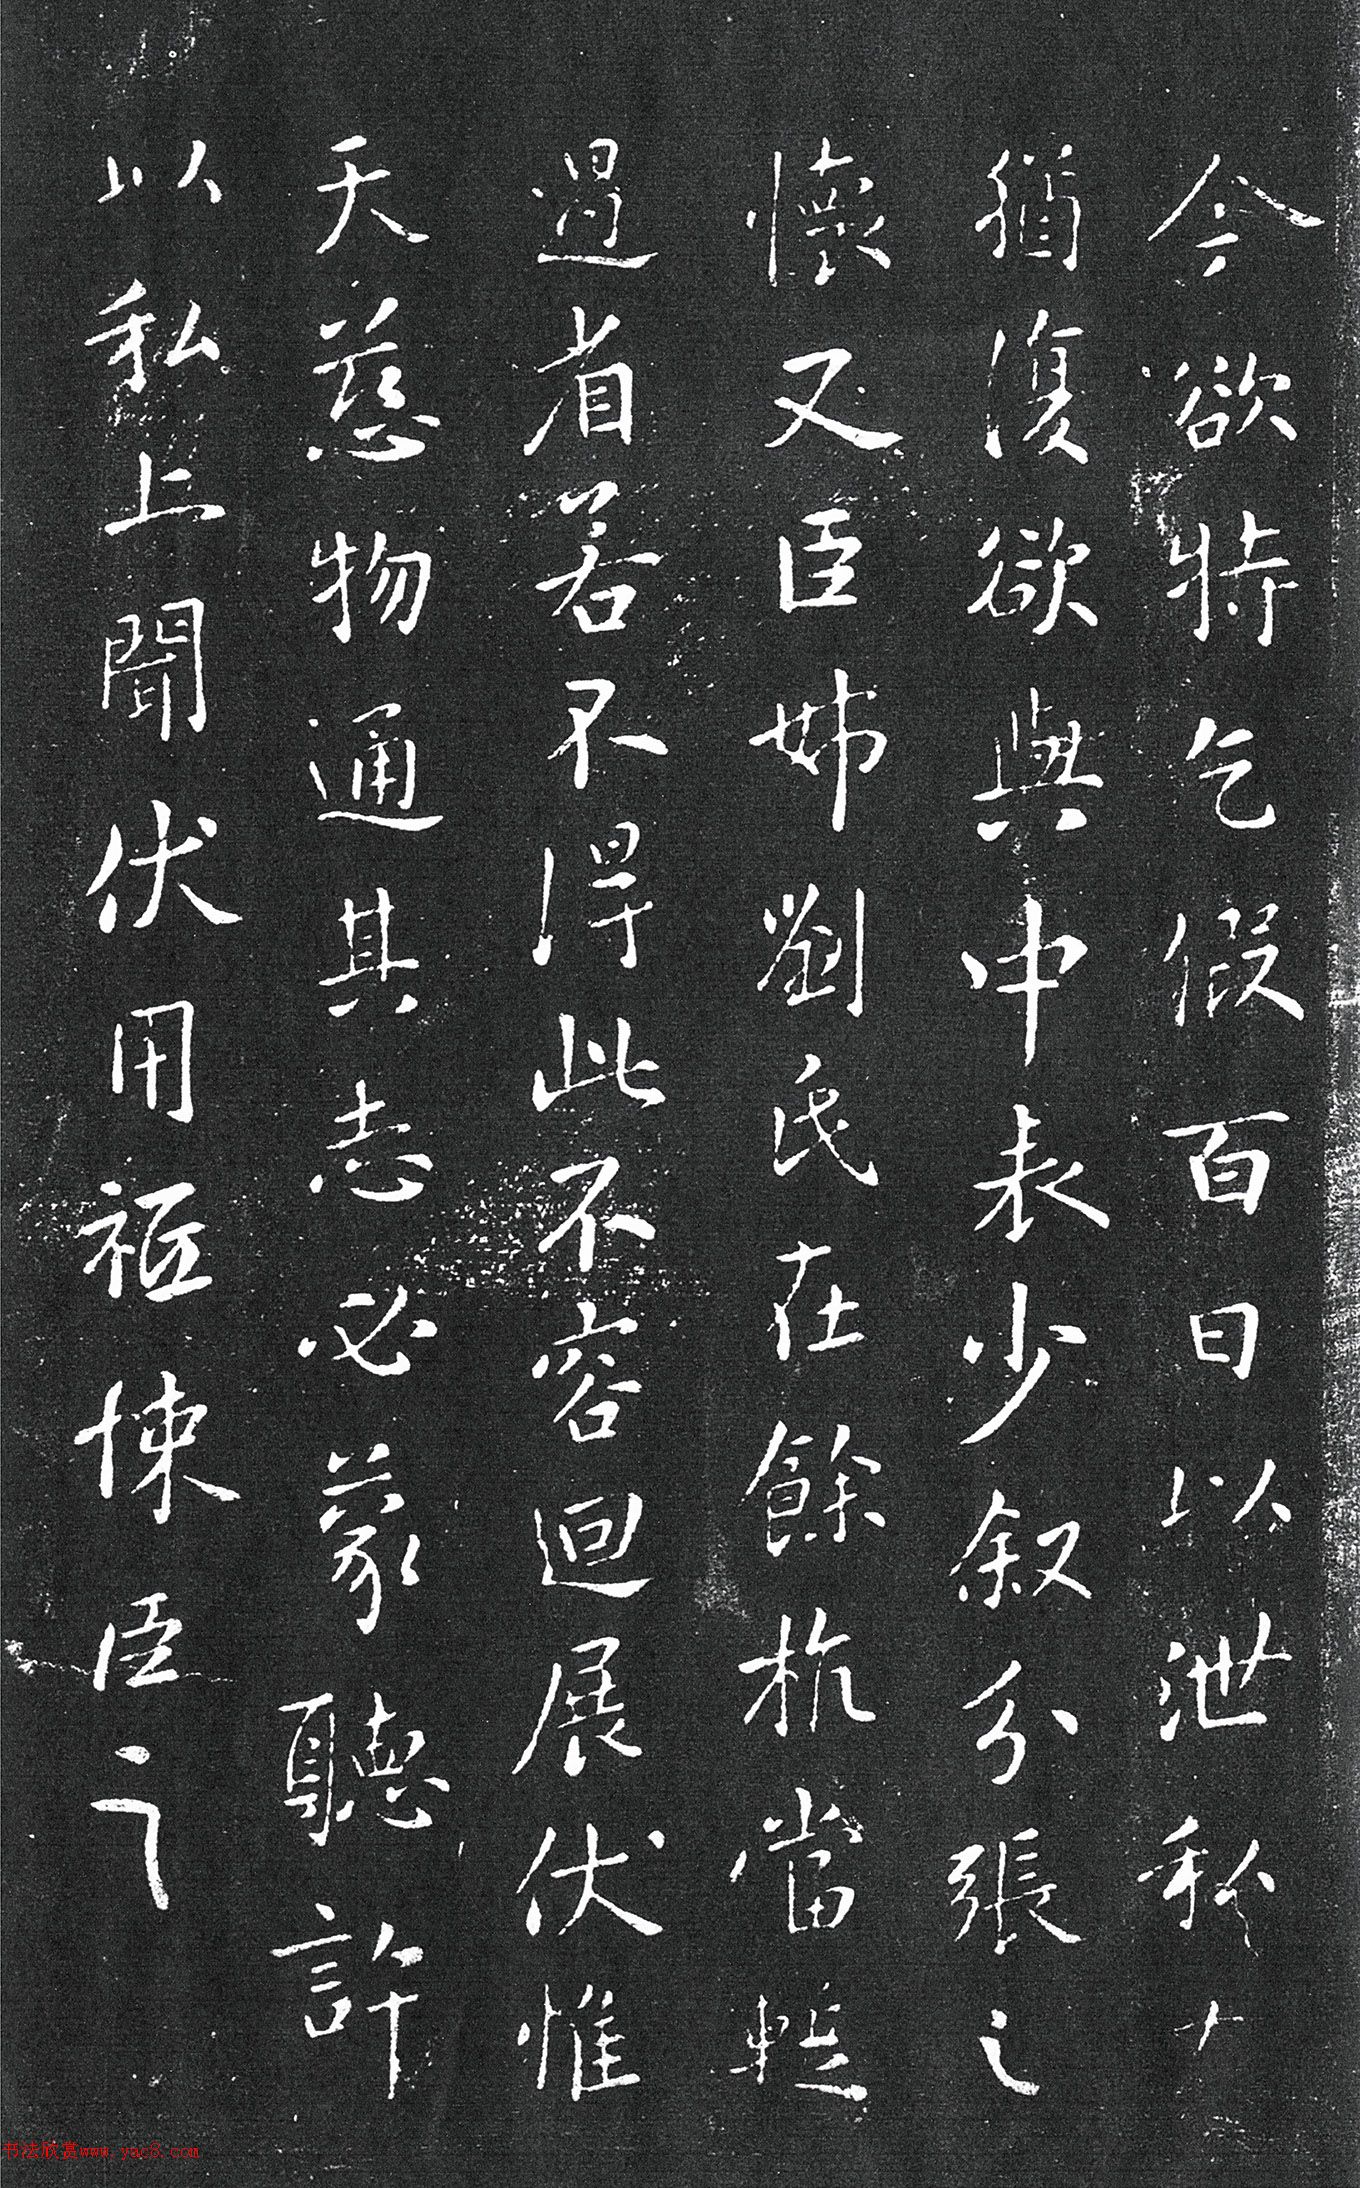 今欲特乞假百日以泄私
猶復欲與中表少叙分張之
懷又臣姊劉氏在餘杭當蹔
過省若不得此不容迴展伏惟
天慈物通其志必蒙聽許
以私上聞伏用悚臣之
书法欣赏www.yac8.com